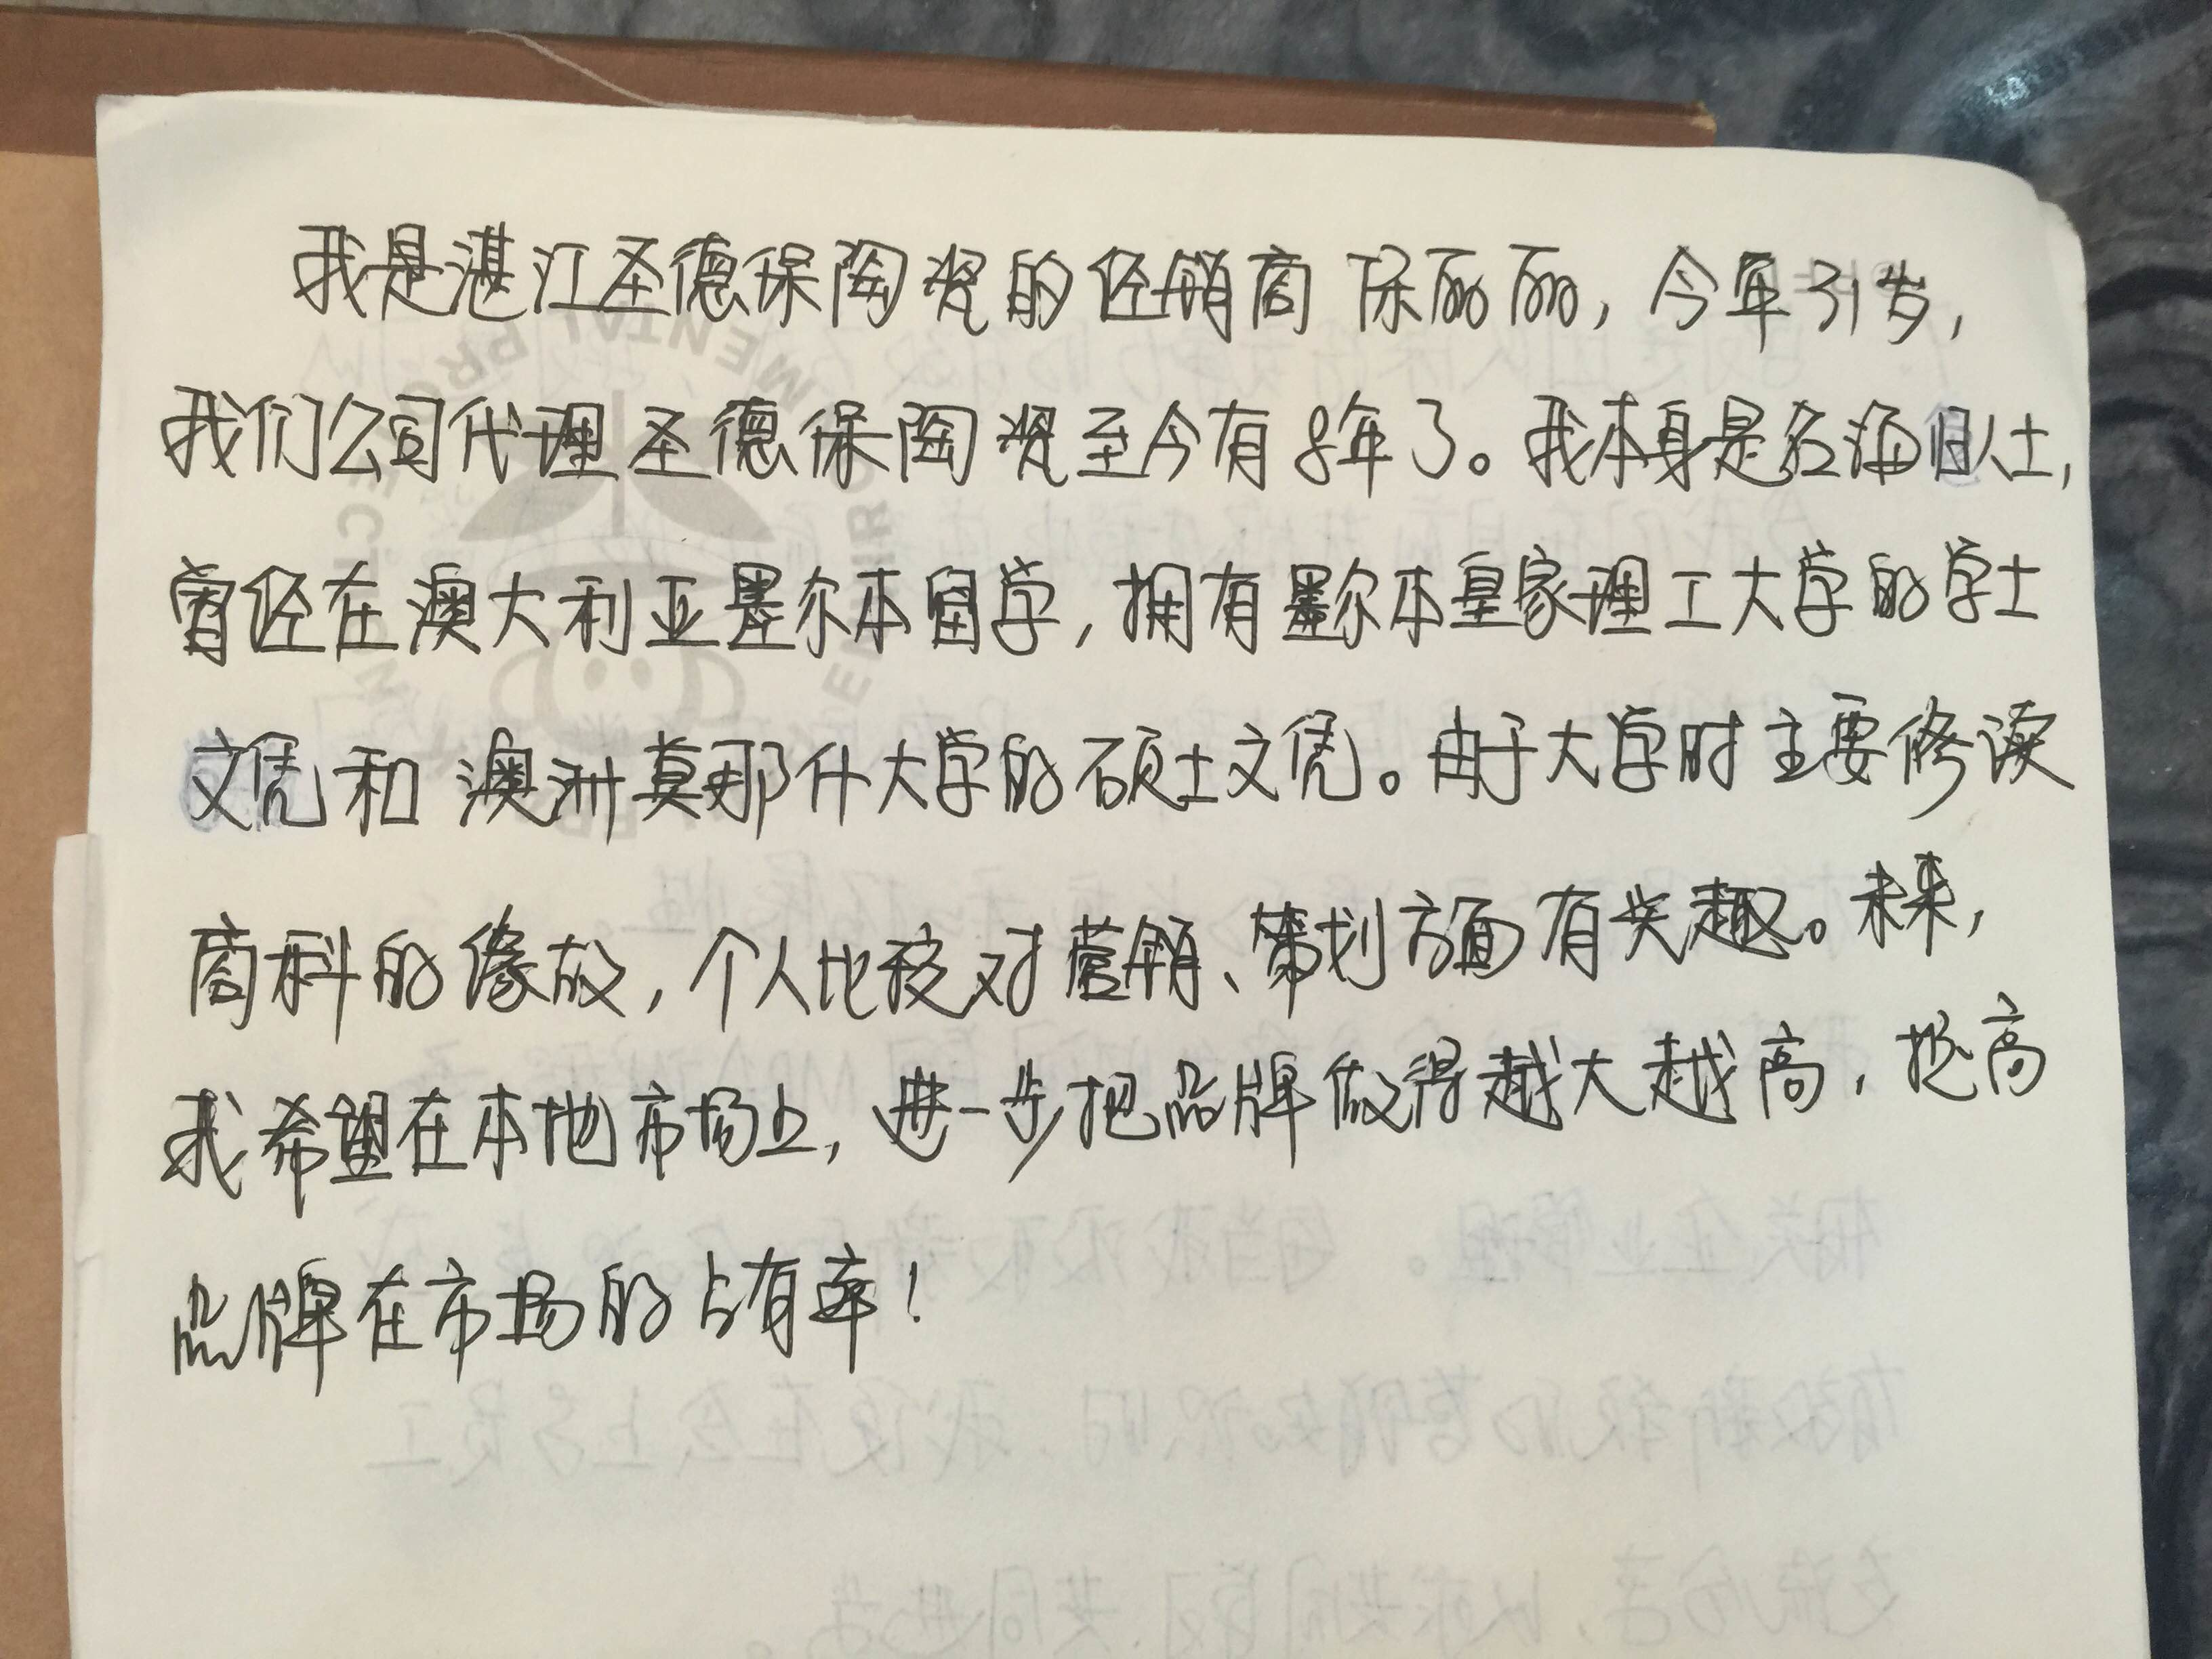 我是湛江圣德保陶瓷的经销商陈丽丽，今年31岁，
我们公司代理圣德保陶瓷至今有8年了。我本身是名海归人士，
曾经在澳大利亚墨尔本留学，拥有墨尔本皇家理工大学的学士
文凭和澳洲莫那什大学的硕士文凭。由于大学时主要修读
商科的缘故，个人比较对营销、策划方面有兴趣。未来，
我希望在本地市场上，进一步把品牌做得越大越高，提高
品牌在市场的占有率！